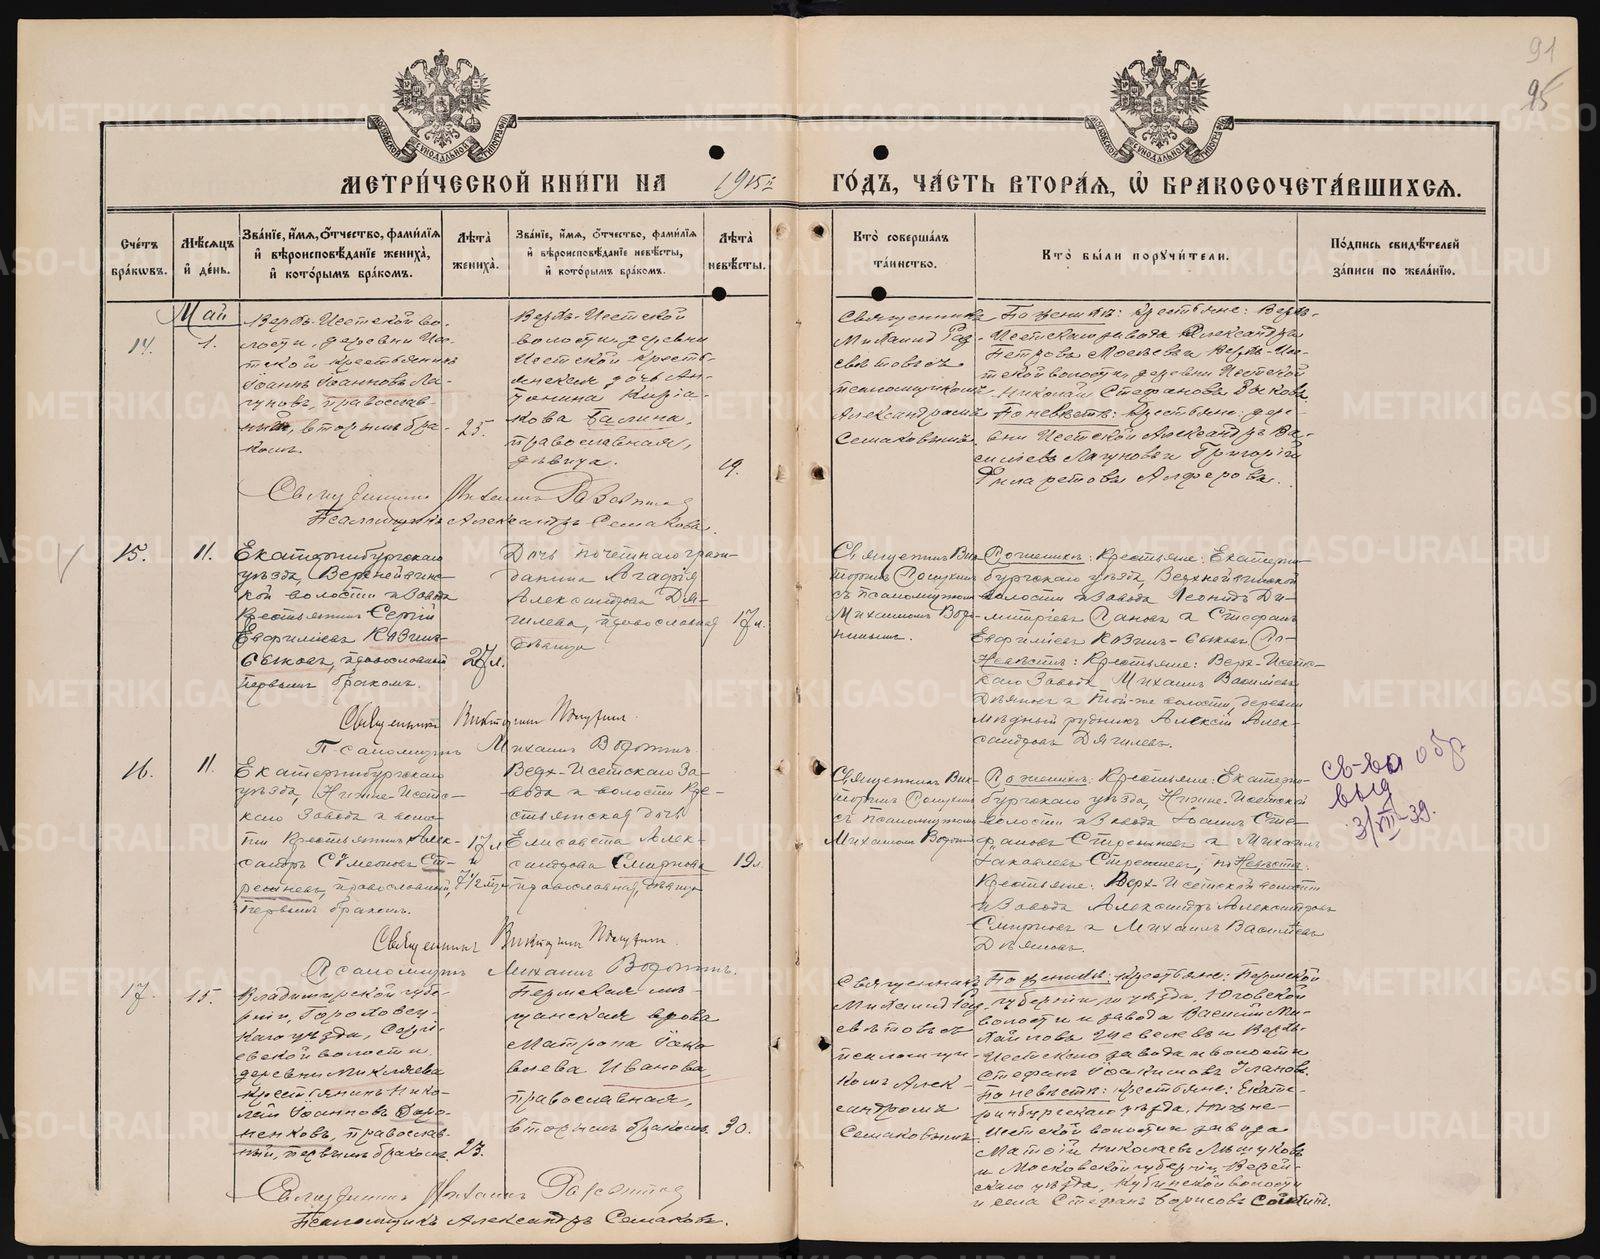 91
95
МЕТРИ́ЧЕСКОЙ КНИ́ГИ НА 1915й ГО́ДЪ, ЧА́СТЬ ВТОРА́Я, Ѿ БРАКОСОЧЕТА́ВШИХСЯ.
Сче́тъ бра́ковъ.
Мѣ́сяцъ и де́нь.
Зва́ніе, и́мя, о́тчество, фами́лія и вѣроисповѣ́даніе жениха̀, и кото́рымъ бра́комъ.
Лѣта̀ жениха̀.
Зва́ніе, и́мя, о́тчество, фами́лія и вѣроисповѣ́даніе невѣ́сты, и кото́рымъ бра́комъ.
Лѣта̀ невѣ́сты.
Кто̀ соверша́лъ та́инство.
Кто̀ бы́ли поручи́тели.
По́дпись свидѣ́телей за́писи по жела́нію.
Май
14.
1.
Верхъ-Исетской во-
лости, деревни Исе-
тской крестьянинъ
Іоаннъ Іоанновъ Ла-
гуновъ, православ-
ный, вторымъ бра-
комъ.
25.
Верхъ-Исетской
волости, деревни
Исетской кресть-
янская дочь Ан-
тонина Киріа-
кова Галина,
православная,
дѣвица.
19.
Священникъ
Михаилъ
псаломщикомъ
Александромъ
Семаковымъ
По женихѣ: крестьяне: Верхъ-
Исетскаго завода Александръ
Петровъ Моѵсеевъ и Верхъ-Исе-
тской волости, деревни Исетской
Николай Стефановъ Быковъ.
По невѣстѣ: крестьяне: дере-
вни Исетской Александръ Ва-
сильевъ Лагуновъ и Григорій
Филаретовъ Алферовъ.
Священникъ Михаилъ
Псаломщикъ Александръ Семаковъ.
15.
11.
Екатеринбургскаго
уѣзда, Верхнейвинс-
кой волости и завода
Крестьянинъ Сергій
Евфиміевъ Казин-
Быковъ, православный
первымъ бракомъ.
27 л.
Дочь почетнаго граж-
данина Агафія
Александрова Дя-
гилева, православная
дѣвица
17 л.
Священникъ Вик-
торинъ
съ псаломщикомъ
Михаиломъ Воро-
нинымъ.
По женихѣ: Крестьяне: Екатерин-
бургскаго уѣзда, Верхнейвинской
волости и завода Леонидъ Ди-
митріевъ Пановъ и Стефанъ
Евфиміевъ Казин-Быковъ По
Невѣстѣ: Крестьяне: Верх-Исетс-
каго завода, Михаилъ Васильевъ
и той-же волости, деревни
Мѣдный рудникъ Алексій Алек-
сандровъ Дягилевъ.
Священникъ Викторинъ
Псаломщикъ Михаилъ Воронинъ
16.
11.
Екатеринбургскаго
уѣзда, Нижне-Исетс-
каго завода и волос-
ти Крестьянинъ Алек-
сандръ Сѵмеоновъ Ст-
решневъ, православный,
первымъ бракомъ.
17 л
и
7 1/2 мѣс
Верх-Исетскаго за-
вода и волости Кре-
стьянская дочь
Елисавета Алек-
сандрова Смирнова
православная, дѣвица
19 л
Священникъ Вик-
торинъ
съ псаломщикомъ
Михаиломъ Ворон
По женихѣ: Крестьяне: Екатерин-
бургскаго уѣзда, Нижне-Исетской
волости и завода Іоаннъ Сте-
фановъ Стрешневъ и Михаилъ
Іаковлевъ Стрешневъ, по Невѣстѣ:
Крестьяне: Верх-Исетской волости
и завода Александръ Александровъ
Смирновъ и Михаилъ Васильевъ
св-ва обр
выд
3/VIII-39.
Священникъ Викторинъ
Псаломщикъ Михаилъ Воронинъ.
17.
15.
Владимірской губе-
рніи, Гороховец-
каго уѣзда,
волости
деревни Микляева
крестьянинъ Нико-
лай Іоанновъ Доро-
ненковъ, православ-
ный, первымъ бракомъ.
23.
Пермская мѣ-
щанская вдова
Матрона Іако-
влева Иванова,
православная,
вторымъ бракомъ.
30.
Священникъ
Михаилъ
псаломщи-
комъ Алек-
сандромъ
Семаковымъ
По женихѣ: крестьяне: Пермской
губерніи и уѣзда, Юговской
волости и завода Василій Ми-
хайловъ Щевелевъ и Верхъ-
Исетскаго завода и волости
Стефанъ Іоакимовъ Улановъ.
По невѣстѣ: крестьяне: Екате-
ринбургскаго уѣзда, Нижне-
Исетской волости и завода
Матѳій Николаевъ Мѣшуковъ
и Московской губерніи, Верей-
скаго уѣзда, Кубинской волости
и села Стефанъ Борисовъ
Священникъ Михаилъ
Псаломщикъ Александръ Семаковъ.
METRIKI.GASO-URAL.RU